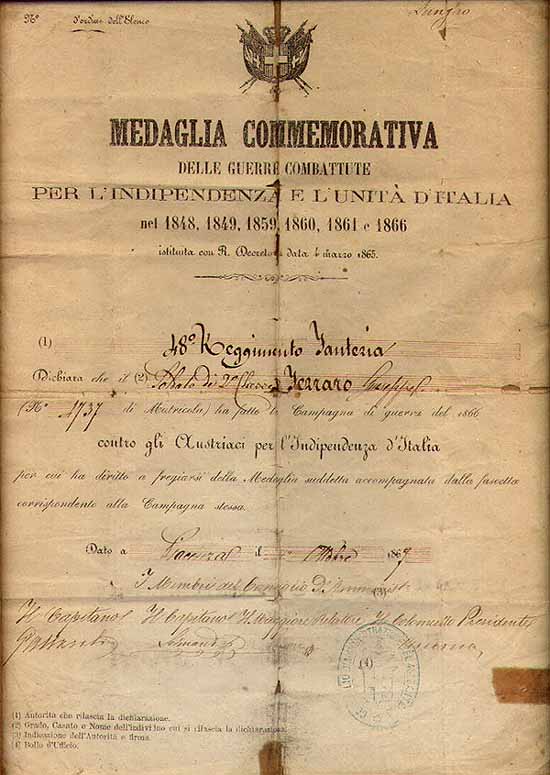 Nº d'ordine dell'Elenco
Lungro
MEDAGLIA COMMEMORATIVA
DELLE GUERRE COMBATTUTE
PER L'INDIPENDENZA E L'UNITÀ D'ITALIA
nel 1848, 1849, 1859, 1860, 1861 e 1866
istituita con R. Decreto in data 4 marzo 1865.
(1) 48º Reggimento Fanteria
Dichiara che il (2) Soldato di 2ª Classe Ferraro Giuseppe
(Nº 4737 di Matricola) ha fatto la Campagna di guerra del 1866
contro gli Austriaci per l'Indipendenza d'Italia
per cui ha diritto a fregiarsi della Medaglia suddetta accompagnata dalla fascetta
corrispondente alla Campagna stessa.
Dato a Piacenza il 1867
I Membri del Consiglio D'
(3)
Il Capitano Il Capitano Il Maggiore Relatore Il Colonnello Presidente
(4)
(1) Autorità che rilascia la dichiarazione.
(2) Grado, Casato e Nome dell'individuo cui si rilascia la dichiarazione.
(3) Indicazione dell'Autorità e firma.
(4) Bollo d'Ufficio.